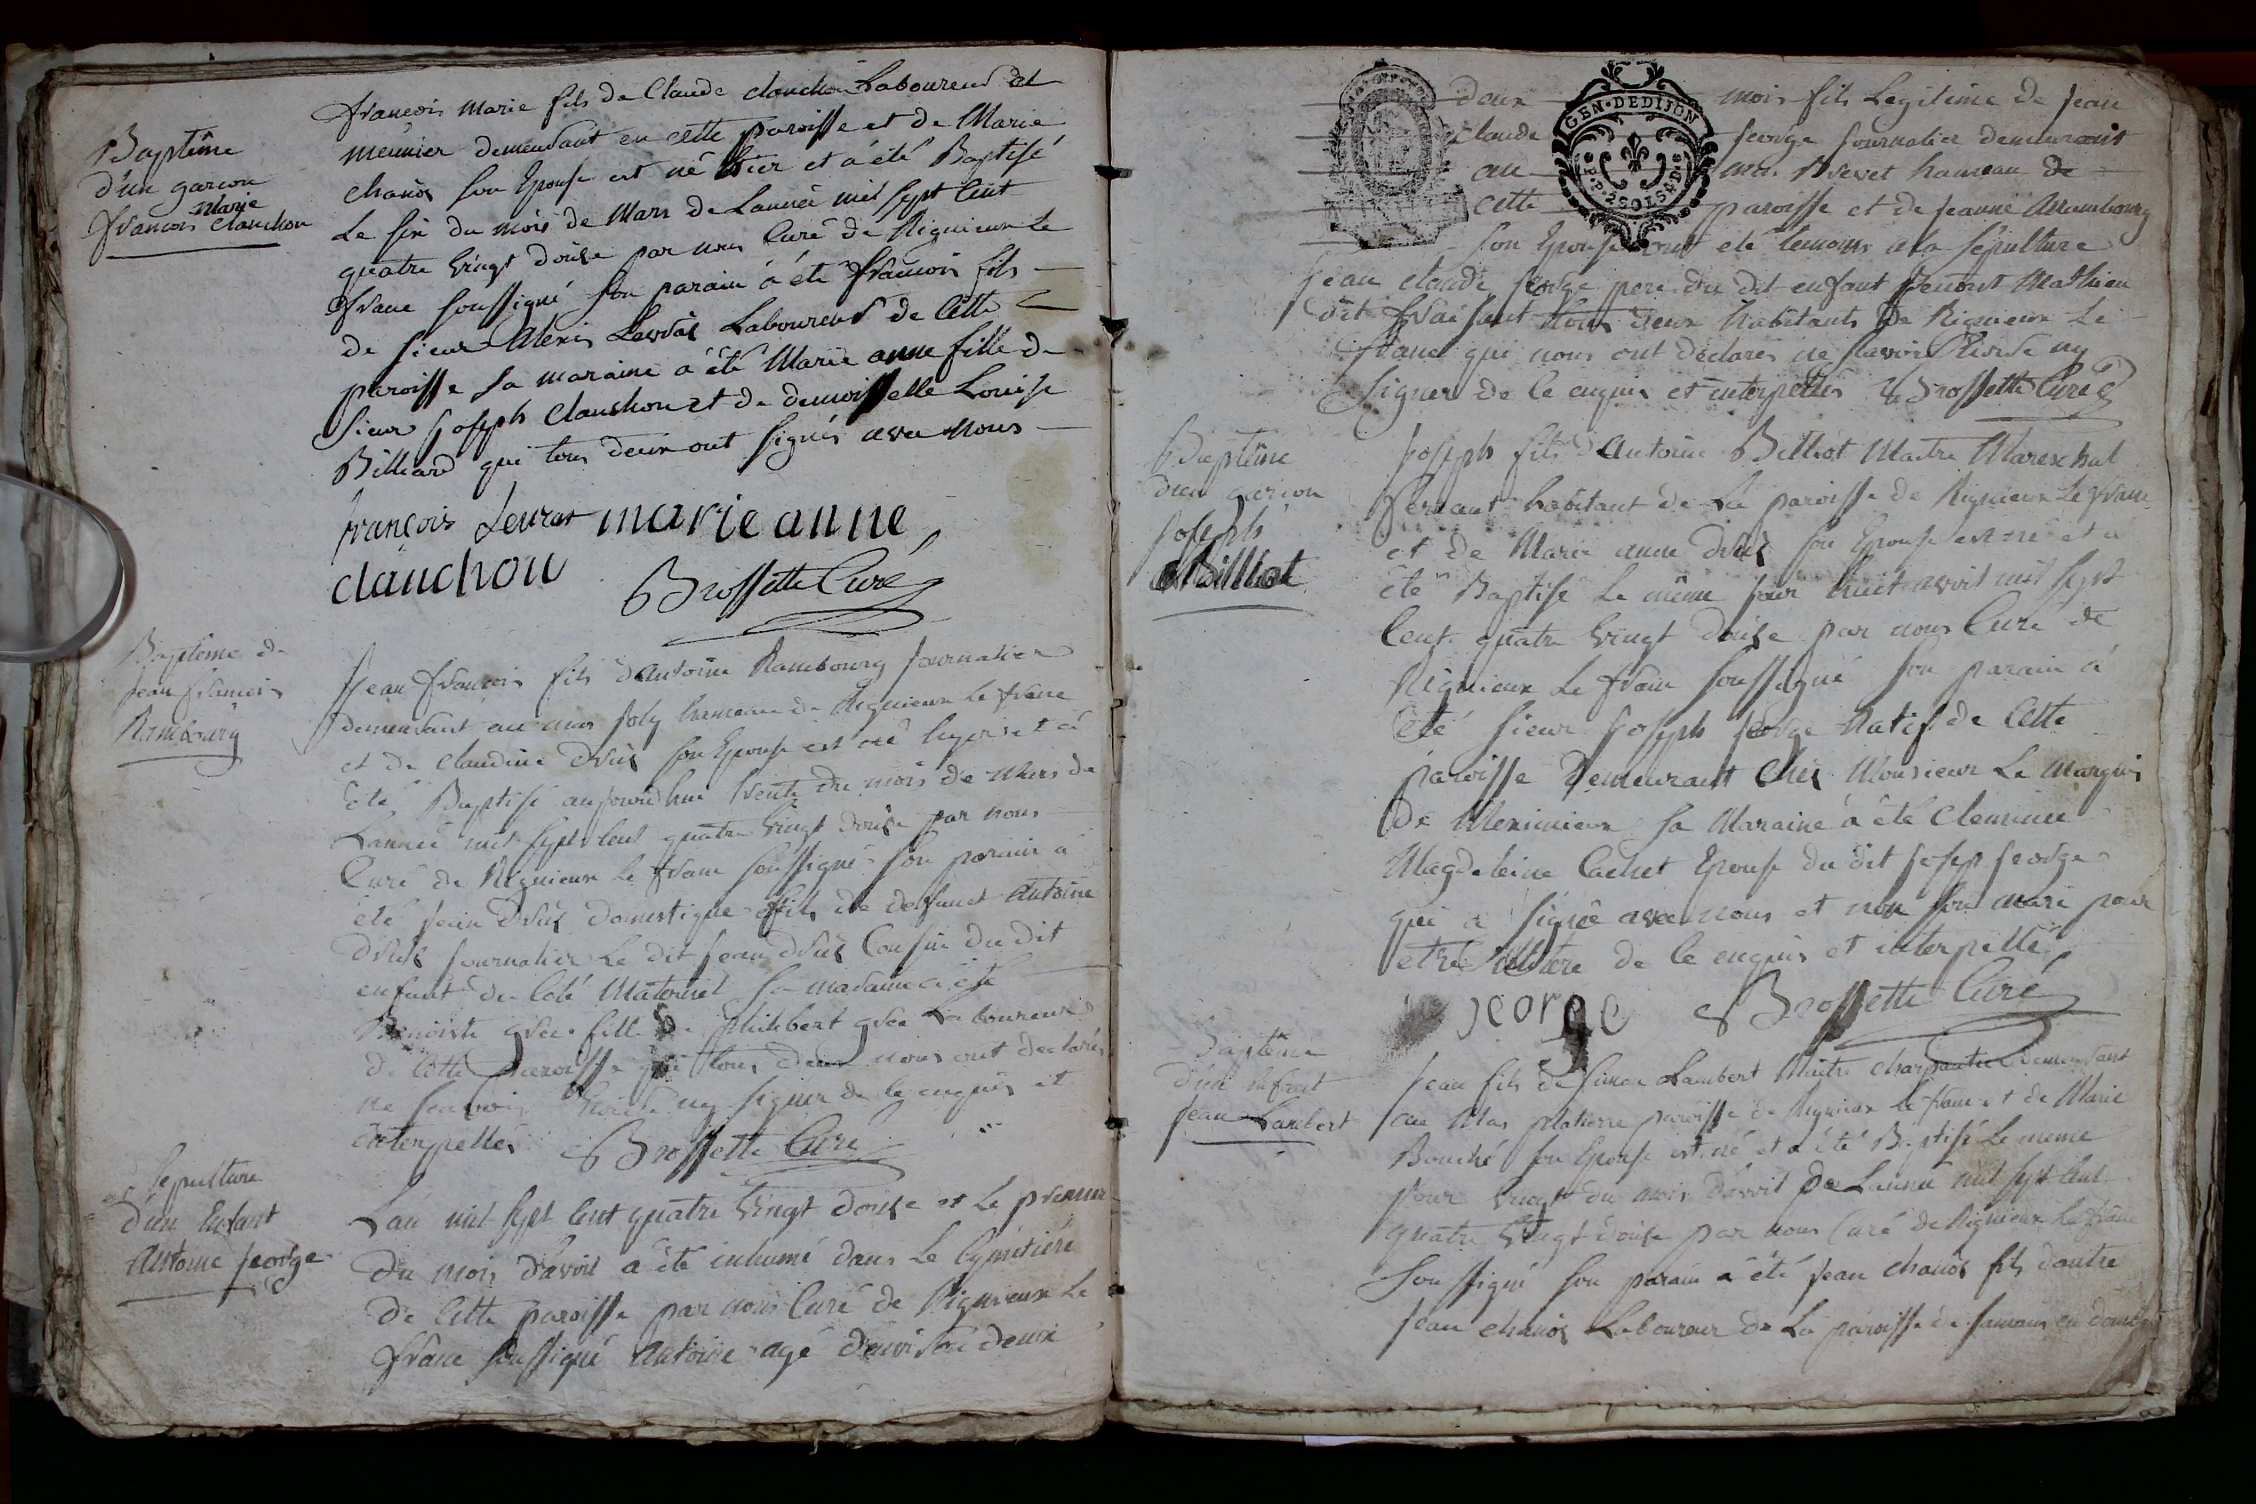 Baptême
d'un garcon
Marie
francois Clanchon
francois Marie fils de Claude clanchon Laboureur et
meunier demeurant en cette paroisse et de Marie
chanôz son Epouse est né hier et à été Baptisé
Le six du mois de Mars de Lannée mil sept Cent
quatre vingt douze par nous Curé de Rignieux Le
franc soussigné son parain à été francois fils
de sieur Alexis Levrat Laboureur de Cette
paroisse sa maraine à été Marie anne fille de
sieur Joseph Clanchon et de demoisselle Louise
Billiard qui tous deux ont signés avec nous
françois Levrat marie anne
clanchon
Brossette Curé
Baptême de
Jean francois
Rambourg
Jean francois fils d'Antoine Rambourg journalier
demeurant au mas Joly hameau de Rignieux Le franc
et de claudine Druz son Epouse est né et à
été Baptisé aujourd'hui trente du mois de Mars de
Lannée mil sept Cent quatre vingt douze par nous
Curé de Rignieux Le franc soussigné son parain a
été jean Druz domestique fils de defunct Antoine
Druz journalier Le dit jean Druz Cousin du dit
enfant de Coté Maternel sa maraine a été
Benoiste fille de philibert Laboureur
de Cette paroisse qui tous deux nous ont declarés
ne scavoir Ecrire ny signer de ce enquis et
interpellés Brossette Curé
Sepulture
d'un Enfant
Antoine george
Lan mil sept Cent quatre vingt douze et Le premier
du mois d'avril a été inhumé dans Le Cymetiere
de Cette paroisse par nous Curé de Rignieux Le
franc soussigné Antoine agé d'environ deux
GEN·DE DIJON
deux mois fils Legitime de jean
claude george journalier demeurant
au mas Brevet hameau de
cette paroisse et de jeanne Arambourg
son Epouse ont eté temoins a la sépulture
jean claude george pere du dit enfant Benoist Mathieu
dit fraisant tous deux habitants de Rignieux Le
franc qui nous ont déclarés ne scavoir Ecrire ny
signer de Ce enquis et interpellés Brossette Curé
Baptême
d'un garcon
Joseph
Billiot
Joseph fils d'Antoine Billiot Maitre Mareschal
ferrant habitant de La paroisse de Rignieux Le franc
et de Marie anne Druz son Epouse est né et a
été Baptisé Le même jour huit avril mil sept
Cent quatre vingt douze par nous Curé de
Rignieux Le franc soussigné son parain à
été sieur Joseph George Natif de Cette
paroisse Demeurant Chez Monsieur Le Marquis
de Meximieux sa Maraine à été Clemence
Magdeleine Cachet Epouse du dit Josep george
qui a signé avec nous et non son mari pour
etre de Ce enquis et interpellé
george Brossette Curé
Baptême
d'un Enfant
Jean Lambert
Jean fils de Lambert Maitre charpantier demeurant
au Mas platierre paroisse de Rignieux Le franc et de Marie
Bouché son Epouse est né et a été Baptisé Le meme
jour vingt du mois d'avril de Lannée mil sept Cent
quatre vingt douze par nous Curé de Rignieux Le franc
soussigné son parain a été jean chanôz fils d'autre
jean chanôz Laboureur de La paroisse de en